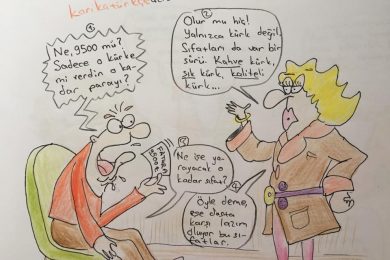 karikatürkçe
1
Ne, 9500 mü?
Sadece o kürke
mi verdin o ka-
dar parayı?
2
Olur mu hiç!
Yalnızca kürk değil.
Sıfatları da var bir
sürü. Kahve kürk,
şık kürk, kaliteli
kürk...
FATURA
9500 ₺
3
Ne işe ya-
rayacak o
kadar sıfat?
4
Öyle deme,
eşe dosta
karşı lazım
oluyor bu sı-
fatlar.